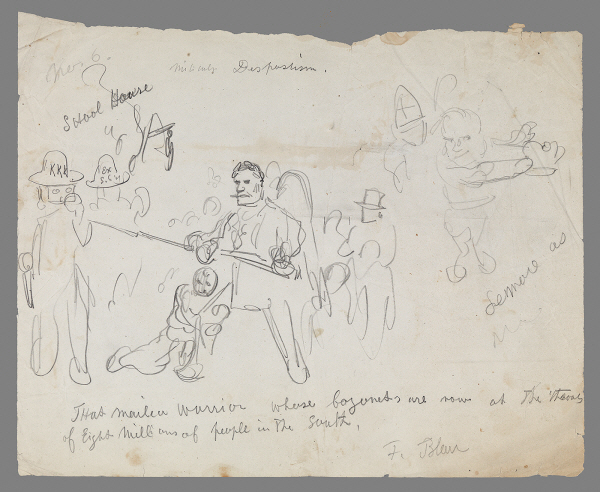 No. 6.
Military Despostism.
School House
KKK
That mailed warrior whose bayonets are now at the throats
of Eight Millions of people in the South.
F. Blair